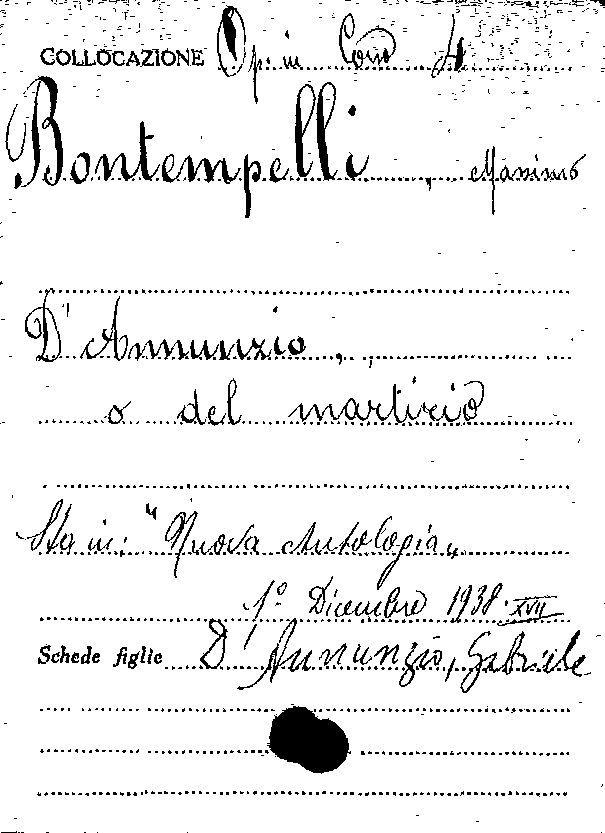 COLLOCAZIONE Op. in Cons 4
Bontempelli, Massimo
D'Annunzio,
o del martirio
Sta in: "Nuova Antologia"
1º Dicembre 1938. XVII
Schede figlie D'Annunzio, Gabriele